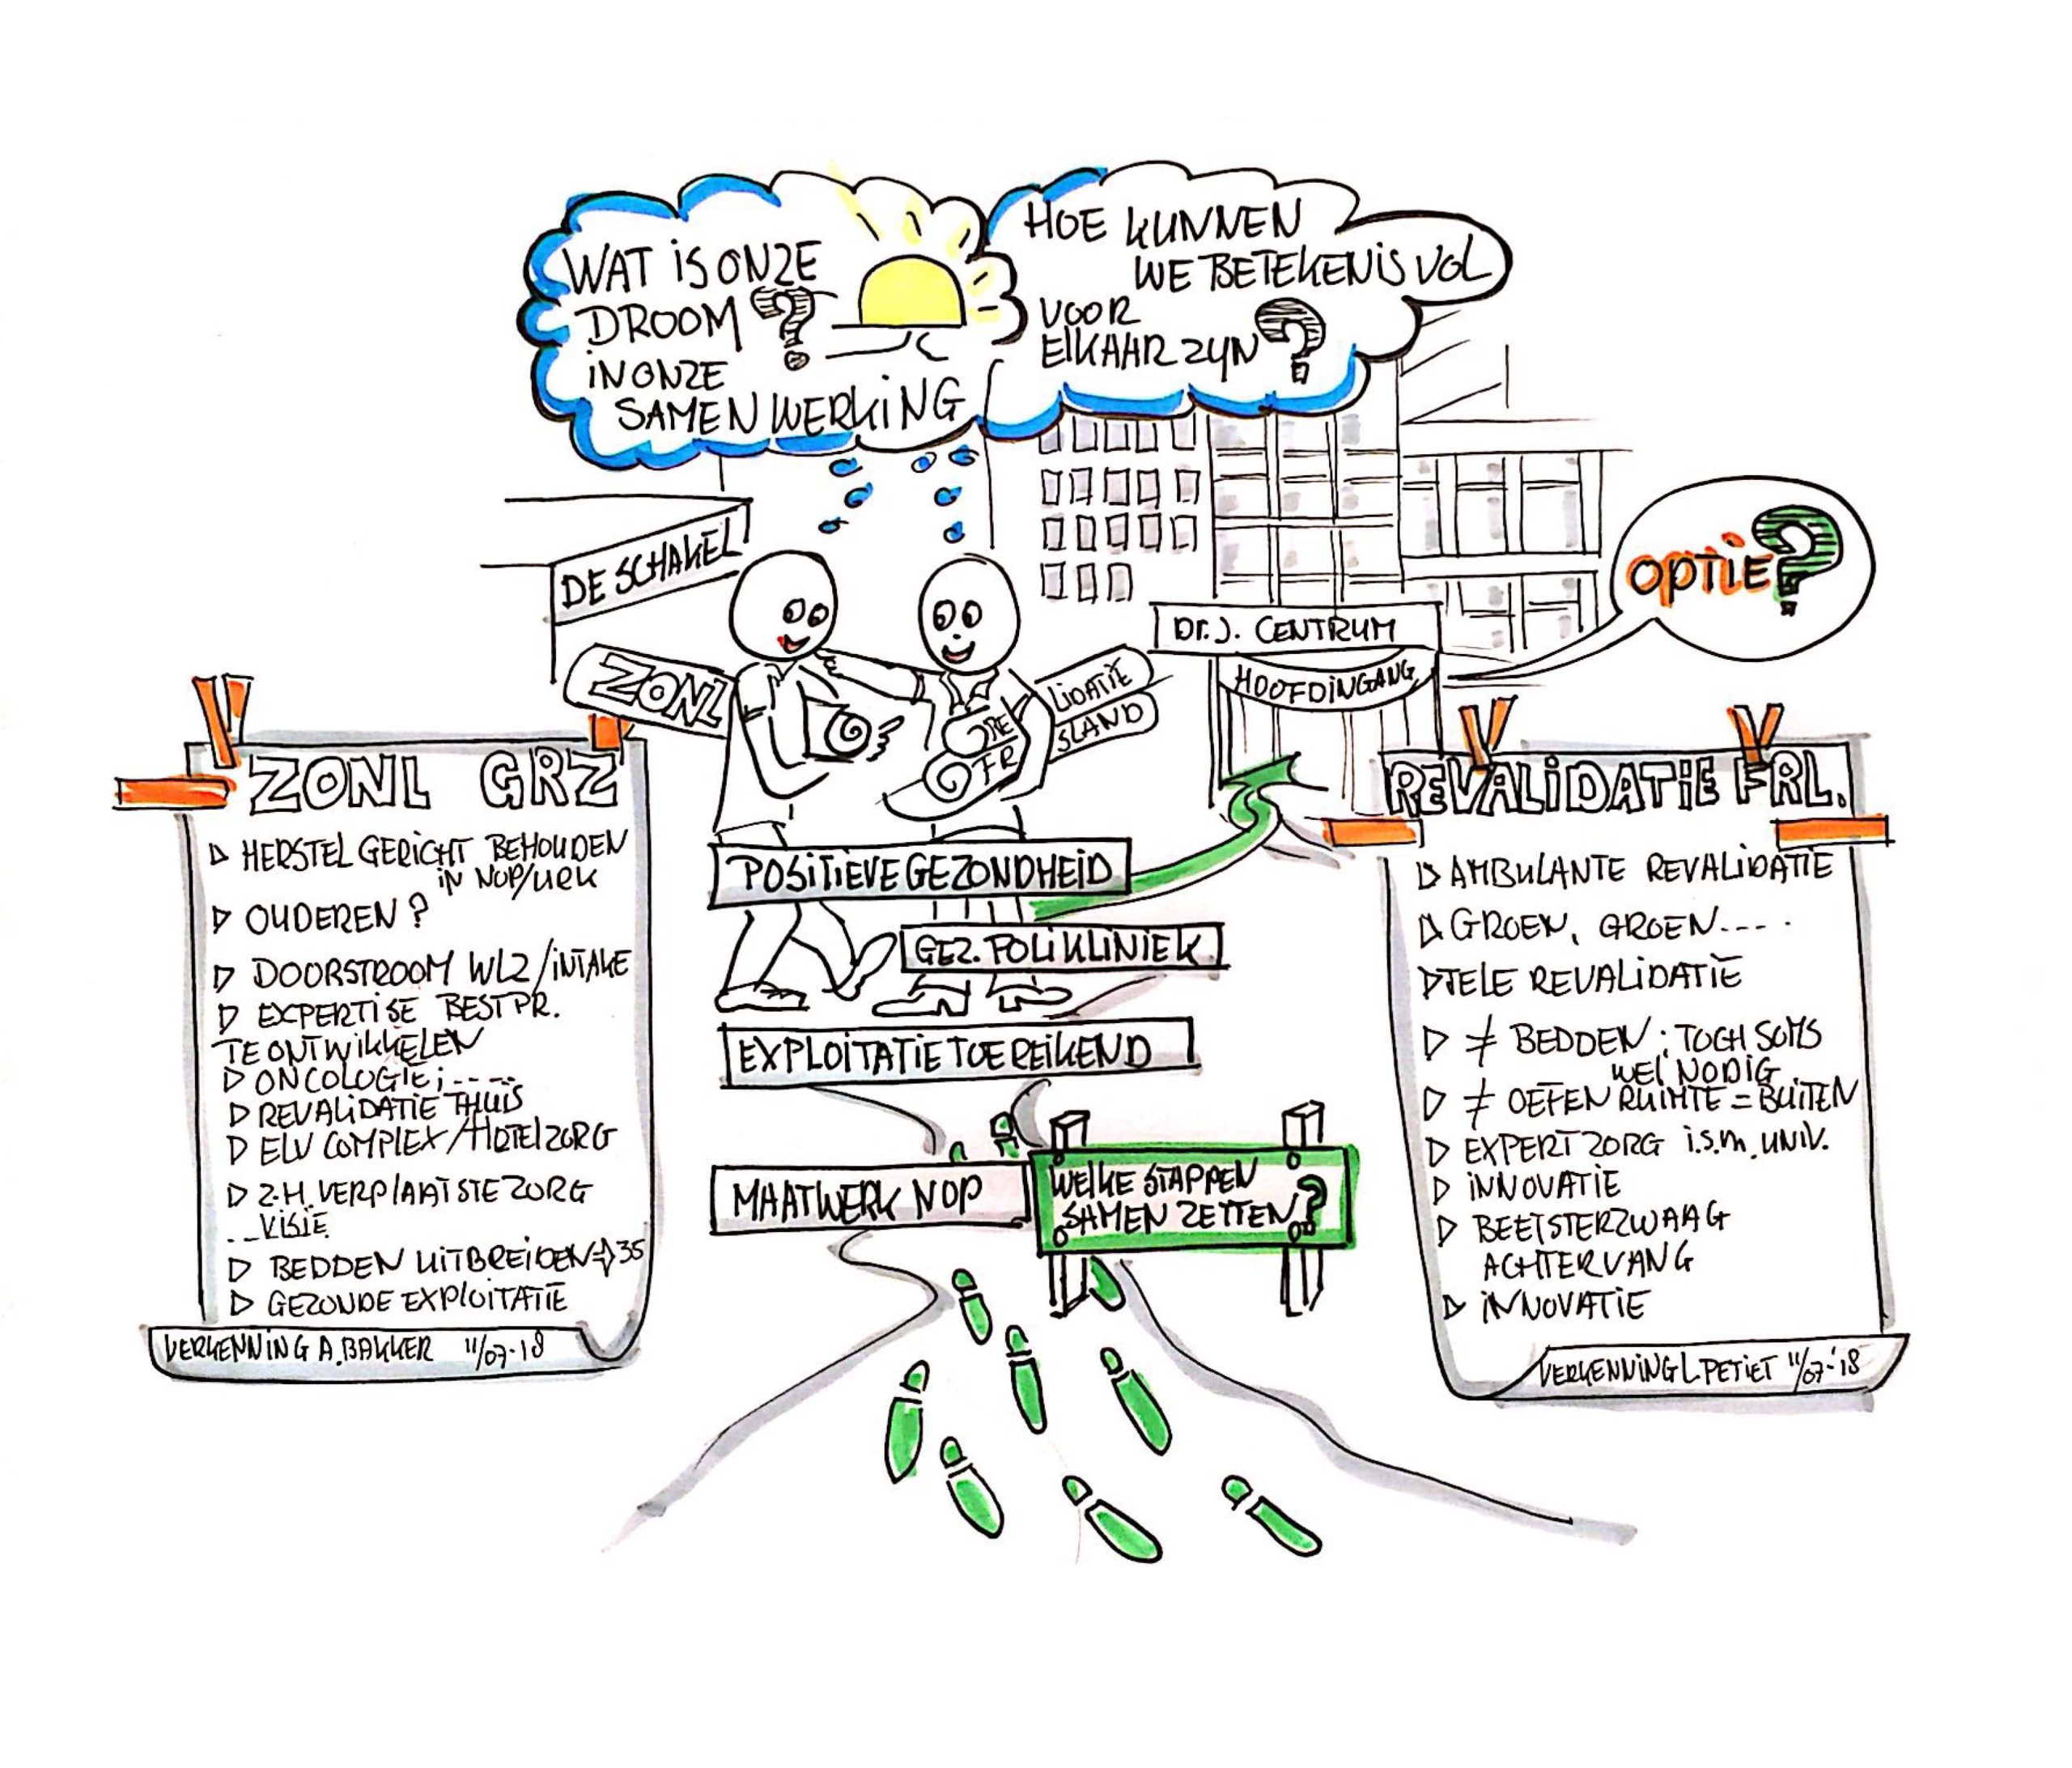 WAT iS ONZE
DROOM ?
iN ONZE
SAMENWERKiNG
HOE KUNNEN
WE BETEKENiSVOL
VOOR
ElKAAR ZYN ?
OPTiE?
DE SCHAKEL
Dr. J. CENTRUM
HOOFDiNGANG
ZONL
RE
FR
LiDATiE
SLAND
ZONL GRZ
▷ HERSTELGERICHT BEHOUDEN
iN NOP/URK
▷ OUDEREN?
▷ DOORSTROOM WLZ/iNTAKE
▷ EXPERTiSE BEST PR.
TE ONTWiKKELEN
▷ ONCOLOGiE; .....
▷ REVALiDATiE THUiS
▷ ELV COMPLEX/HOTElZORG
▷ Z.H. VERPlAATSTE ZORG
... ViSiE
▷ BEDDEN UiTBREiDEN → 35
▷ GEZONDE EXPlOiTATiE
VERKENNiNG A. BAKKER 11/07-18
POSiTiEVE GEZONDHEiD
GEZ. POLiKLiNiEK
EXPLOiTATiE TOEREiKEND
MAATWERK NOP
WELKE STAPPEN
SAMEN ZETTEN?
REVALiDATiE FRL.
▷ AMBULANTE REVALiDATiE
▷ GROEN, GROEN.....
▷ TELE REVALiDATiE
▷ ≠ BEDDEN; TOCH SOMS
WEl NODiG
▷ ≠ OEFENRUiMTE = BUiTEN
▷ EXPERTZORG i.s.m. UNiV.
▷ iNNOVATiE
▷ BEETSTERZWAAG
ACHTERVANG
▷ iNNOVATiE
VERKENNiNG L. PETiET 11/07-'18